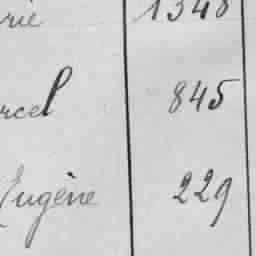 rie 1348
rcel 845
Eugène 229